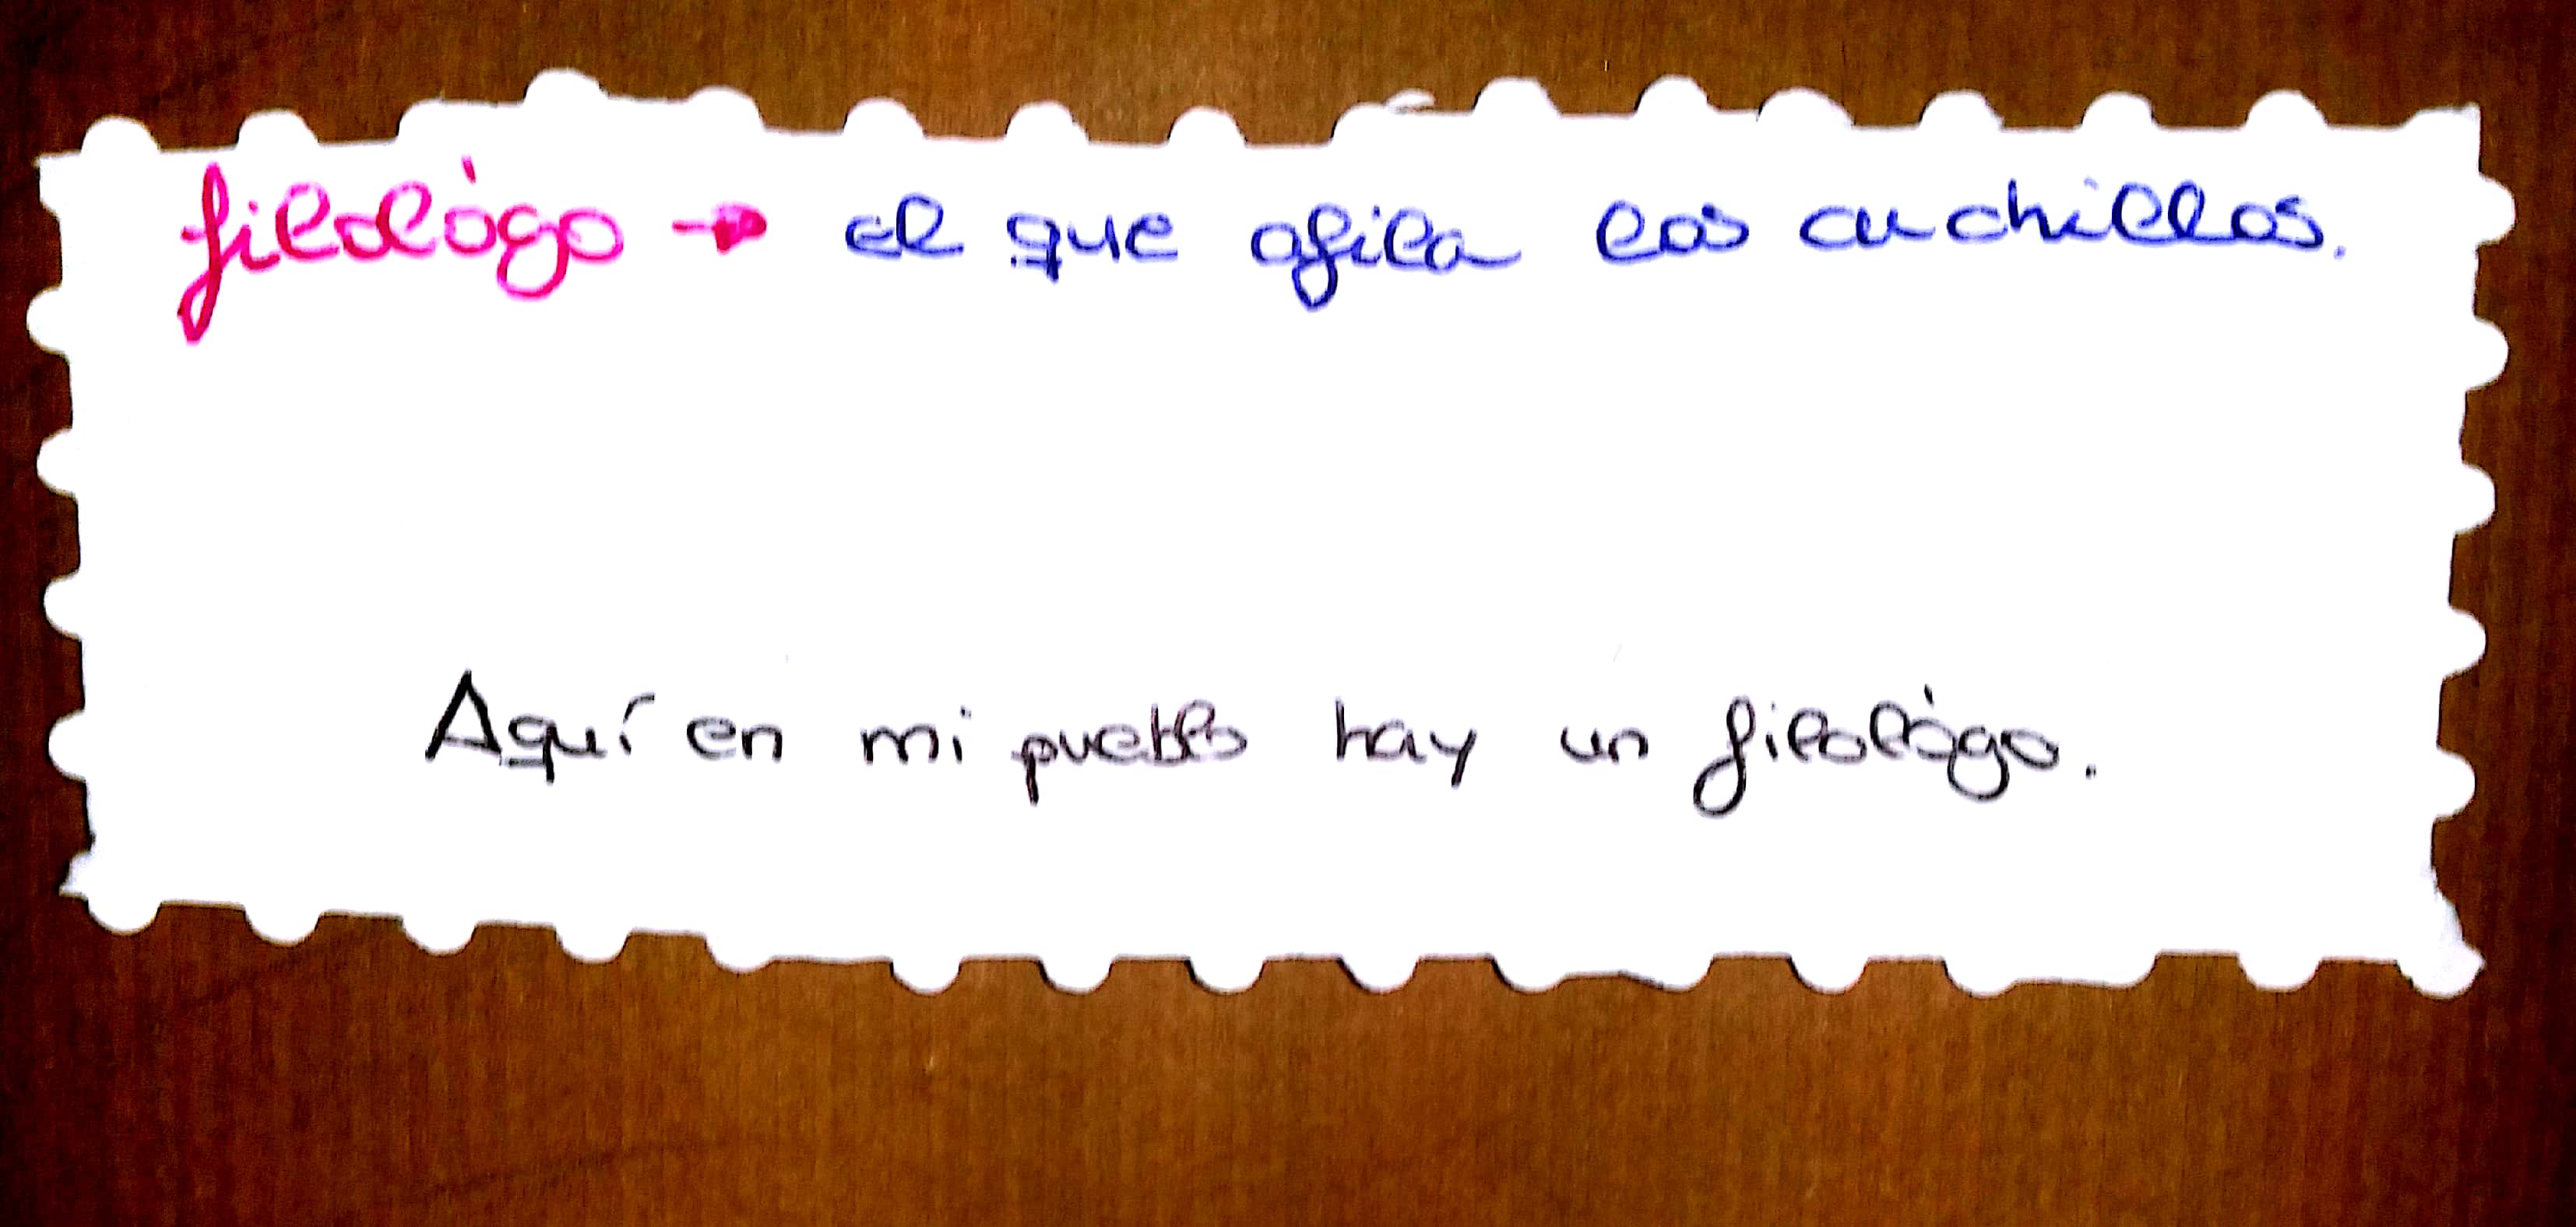 filológo → el que afila los cuchillos.
Aquí en mi pueblo hay un filológo.